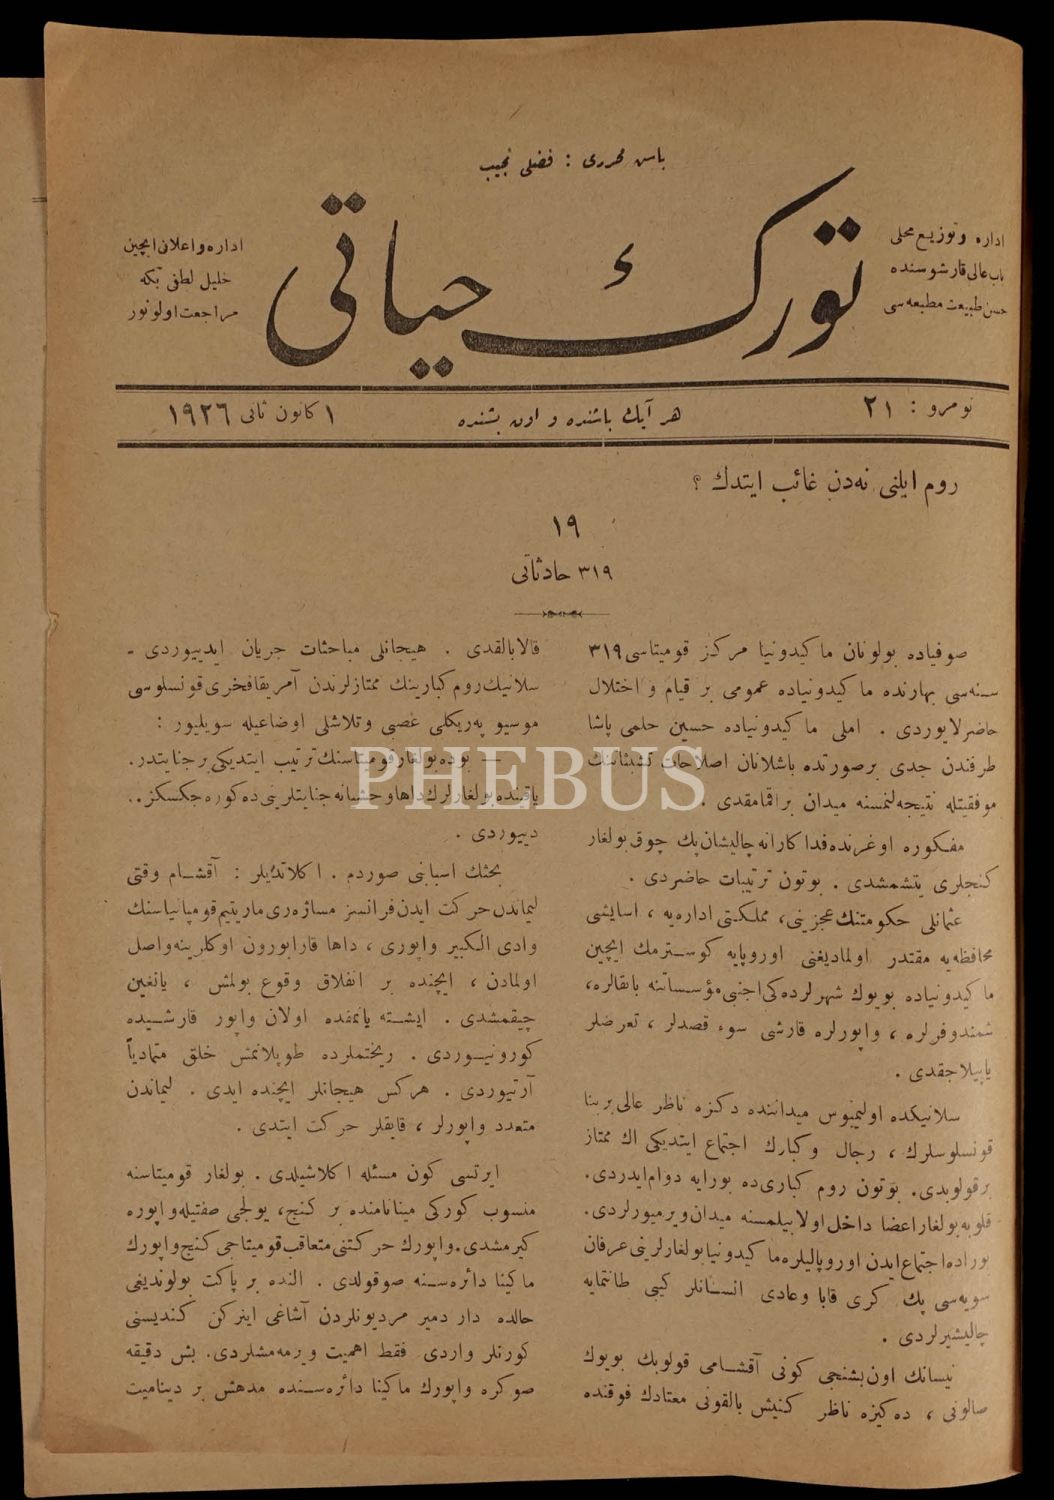 باش محرری : فضلی نجیب
اداره و توزیع محلی
باب عالی قارشوسنده
حسن طبیعت مطبعه‌سی
تورك حیاتی
اداره و اعلان ایچین
خلیل لطفی بكه
مراجعت اولونور
نومرو : ٢١
هر آیك باشنده و اون بشنده
١ كانون ثانی ١٩٢٦
روم ایلنی نه‌دن غائب ایتدك ؟
١٩
٣١٩ حادثاتی
صوفیاده بولونان ماكیدونیا مركز قومیتاسی ٣١٩
سنه‌سی بهارنده ماكیدونیاده عمومی بر قیام و اختلال
حاضرلایوردی . املی ماكیدونیاده حسین حلمی پاشا
طرفندن جدی برصورتده باشلانان اصلاحات تشبثاتنك
موفقیتله نتیجه‌لنمسنه میدان براقمامقدی .
مفكوره اوغرنده فداكارانه چالیشان پك چوق بولغار
كنجلری یتشمشدی . بوتون ترتیبات حاضردی .
عثمانلی حكومتنك عجزینی، مملكتی اداره‌یه ، اسایشی
محافظه‌یه مقتدر اولمادیغنی اوروپایه كوسترمك ایچین
ماكیدونیاده بویوك شهرلرده‌كی اجنبی مؤسساتنه بانقالره،
شمندوفرلره ، واپورلره قارشی سوء قصدلر ، تعرضلر
یاپیلاجقدی .
سلانیكده اولیمپوس میداننده دكزه ناظر عالی بر بنا
قونسلوسلرك ، رجال وكبارك اجتماع ایتدیكی اك ممتاز
برقولوبدی. بوتون روم كباری‌ده بورایه دوام ایدردی.
قلوبه بولغار اعضا داخل اولابیلمسنه میدان ویرمیورلردی.
بوراده اجتماع ایدن اوروپالیلره ماكیدونیا بولغارلرینی عرفان
سویه‌سی پك كری قابا وعادی انسانلر كیبی طانتمایه
چالیشیرلردی .
نیسانك اون‌بشنجی كونی آقشامی قولوبك بویوك
صالونی ، ده‌كیزه ناظر كنیش بالقونی معتادك فوقنده
قالابالقدی . هیجانلی مباحثات جریان ایدییوردی ـ
سلانیك روم كبارینك ممتازلرندن آمریقا فخری قونسلوسی
موسیو په‌ریكلی عصبی وتلاشلی اوضاعیله سویلیور :
— بوده بولغار قومیتاسنك ترتیب ایتدیكی برجنایتدر.
یاقینده بولغارلرك داها وحشیانه جنایتلرینی ده كوره‌جكسكز..
دییوردی .
بحثك اسبابنی صوردم . اكلاتدیلر : آقشام وقتی
لیماندن حركت ایدن فرانسز مساژه‌ری ماریتیم قومپانیاسنك
وادی الكبیر واپوری ، داها قارابورون اوكلرینه واصل
اولمادن ، ایچنده بر انفلاق وقوع بولمش ، یانغین
چیقمشدی . ایشته یانمقده اولان واپور قارشیده
كورونیوردی . ریختملرده طوپلانمش خلق متمادیاً
آرتیوردی . هركس هیجانلر ایچنده ایدی . لیماندن
متعدد واپورلر ، قایقلر حركت ایتدی .
ایرتسی كون مسئله اكلاشیلدی . بولغار قومیتاسنه
منسوب كوركی میتانامنده بر كنج، یولجی صفتیله واپوره
كیرمشدی. واپورك حركتنی متعاقب قومیتاجی كنج واپورك
ماكینا دائره‌سنه صوقولدی . النده بر پاكت بولوندیغی
حالده دار دمیر مردیونلردن آشاغی اینركن كندیسنی
كورنلر واردی فقط اهمیت ویرمه‌مشلردی. بش دقیقه
صوكره واپورك ماكینا دائره‌سنده مدهش بر دینامیت
PHEBUS